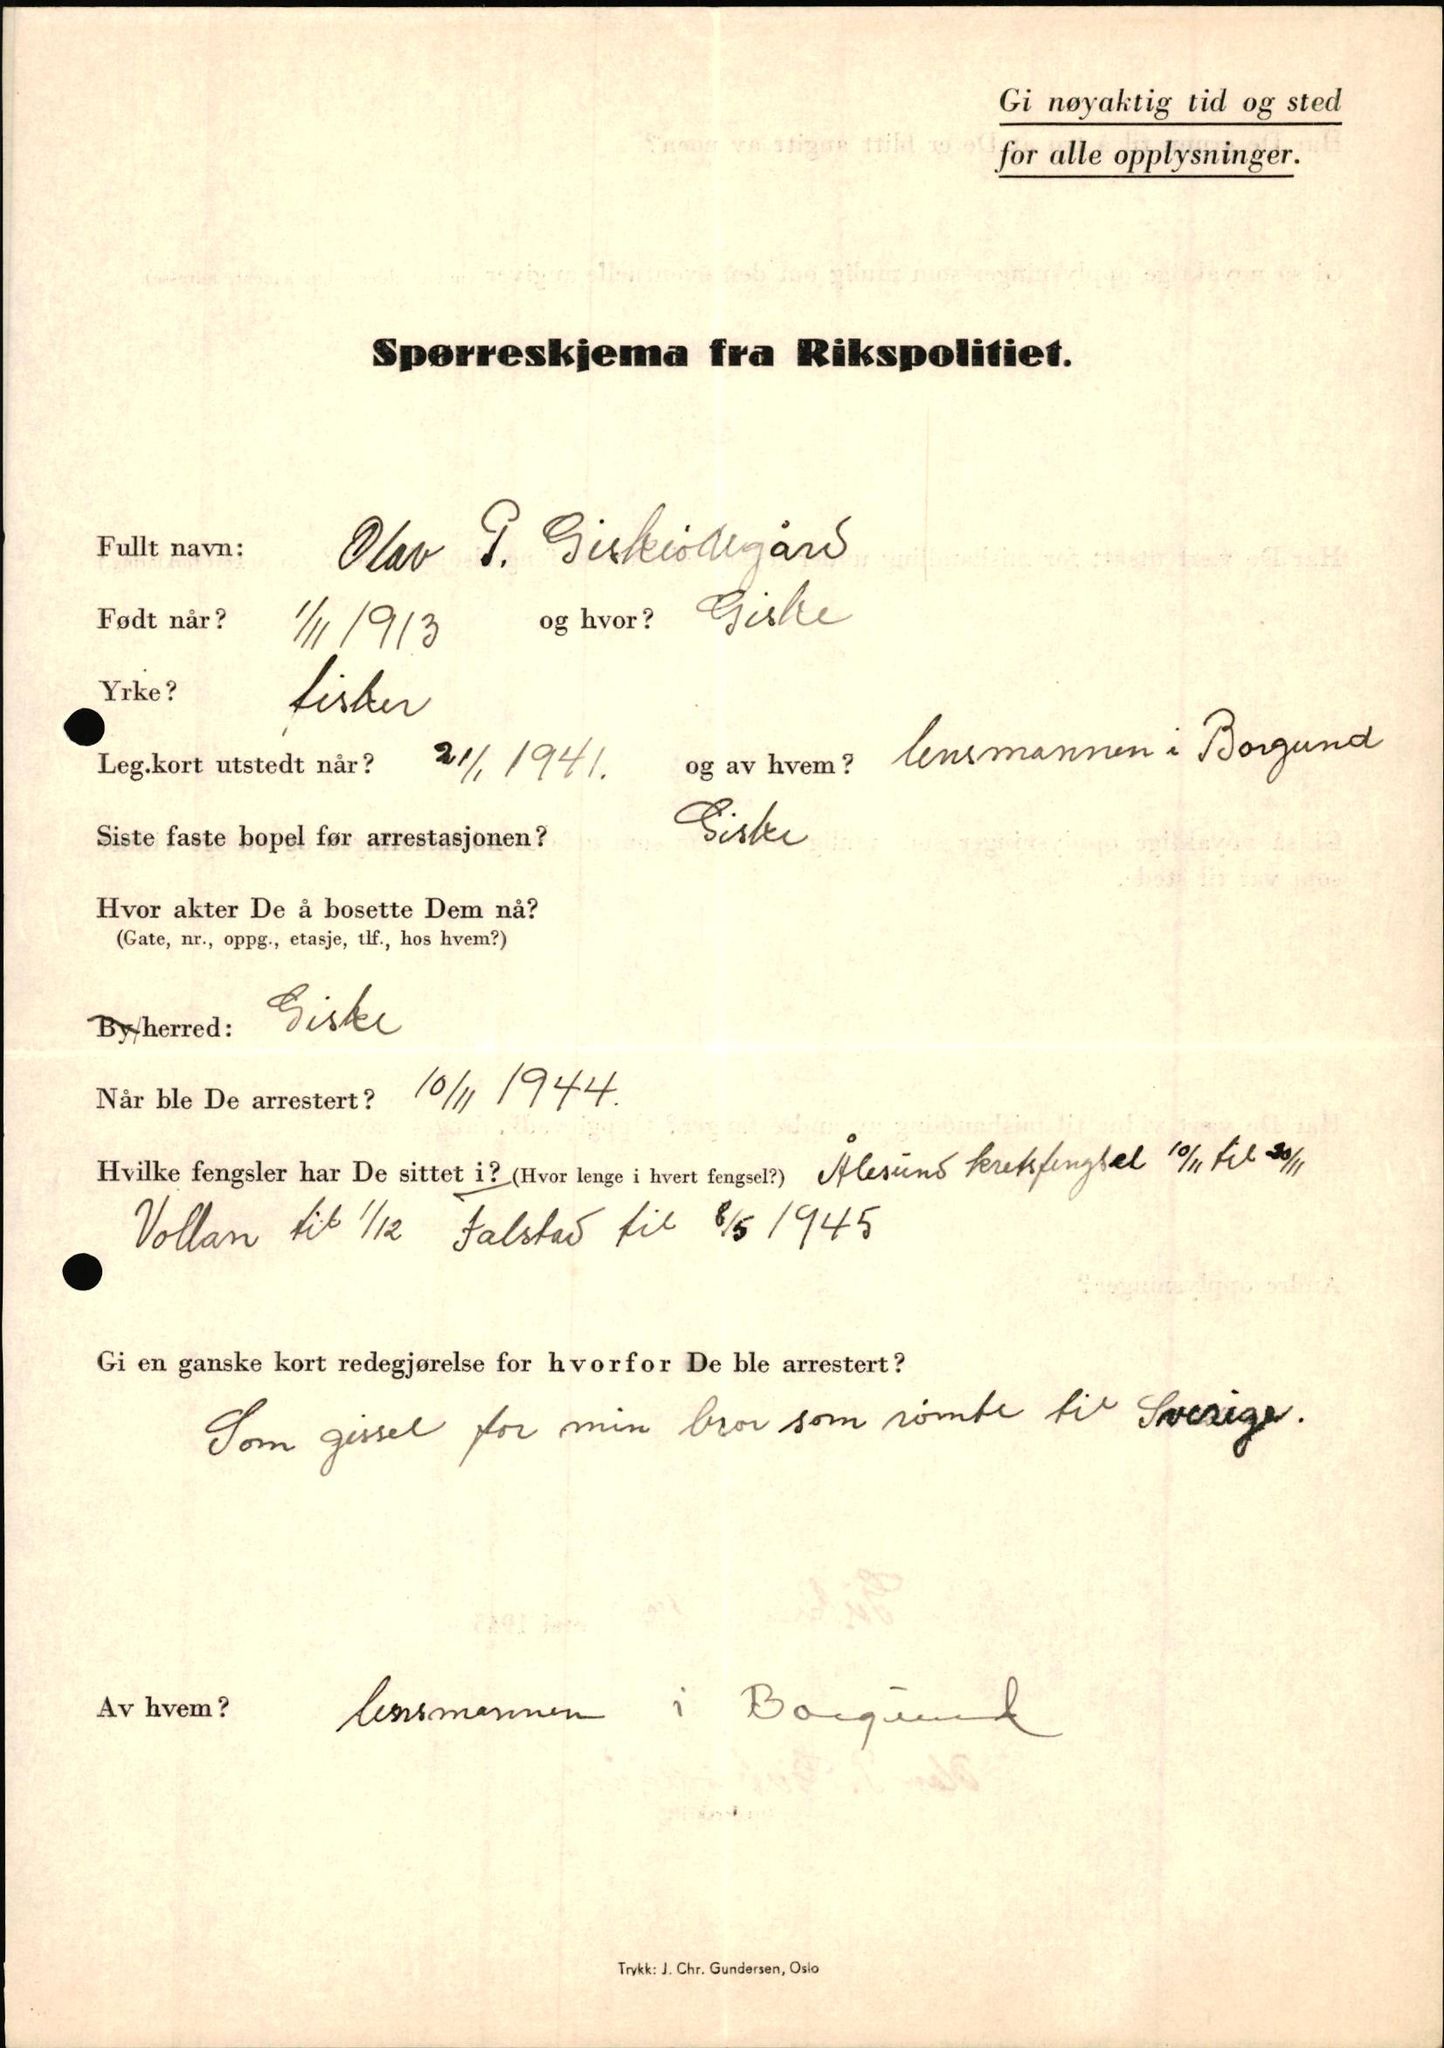 Gi nøyaktig tid og sted
for alle opplysninger.
Spørreskjema fra Rikspolitiet.
Fullt navn: Olav P. Giskeødegård
Født når? 1/11 1913 og hvor? Giske
Yrke? fisker
Leg.kort utstedt når? 21/1 1941. og av hvem? lensmannen i Borgund
Siste faste bopel før arrestasjonen? Giske
Hvor akter De å bosette Dem nå?
(Gate, nr., oppg., etasje, tlf., hos hvem?)
By/herred: Giske
Når ble De arrestert? 10/11 1944.
Hvilke fengsler har De sittet i? (Hvor lenge i hvert fengsel?) Ålesund kretsfengsel 10/11 til 30/11
Vollan til 1/12 Falstad til 8/5 1945
Gi en ganske kort redegjørelse for hvorfor De ble arrestert?
Som gissel for min bror som rømte til Sverige.
Av hvem? lensmannen i Borgund
Trykk: J. Chr. Gundersen, Oslo